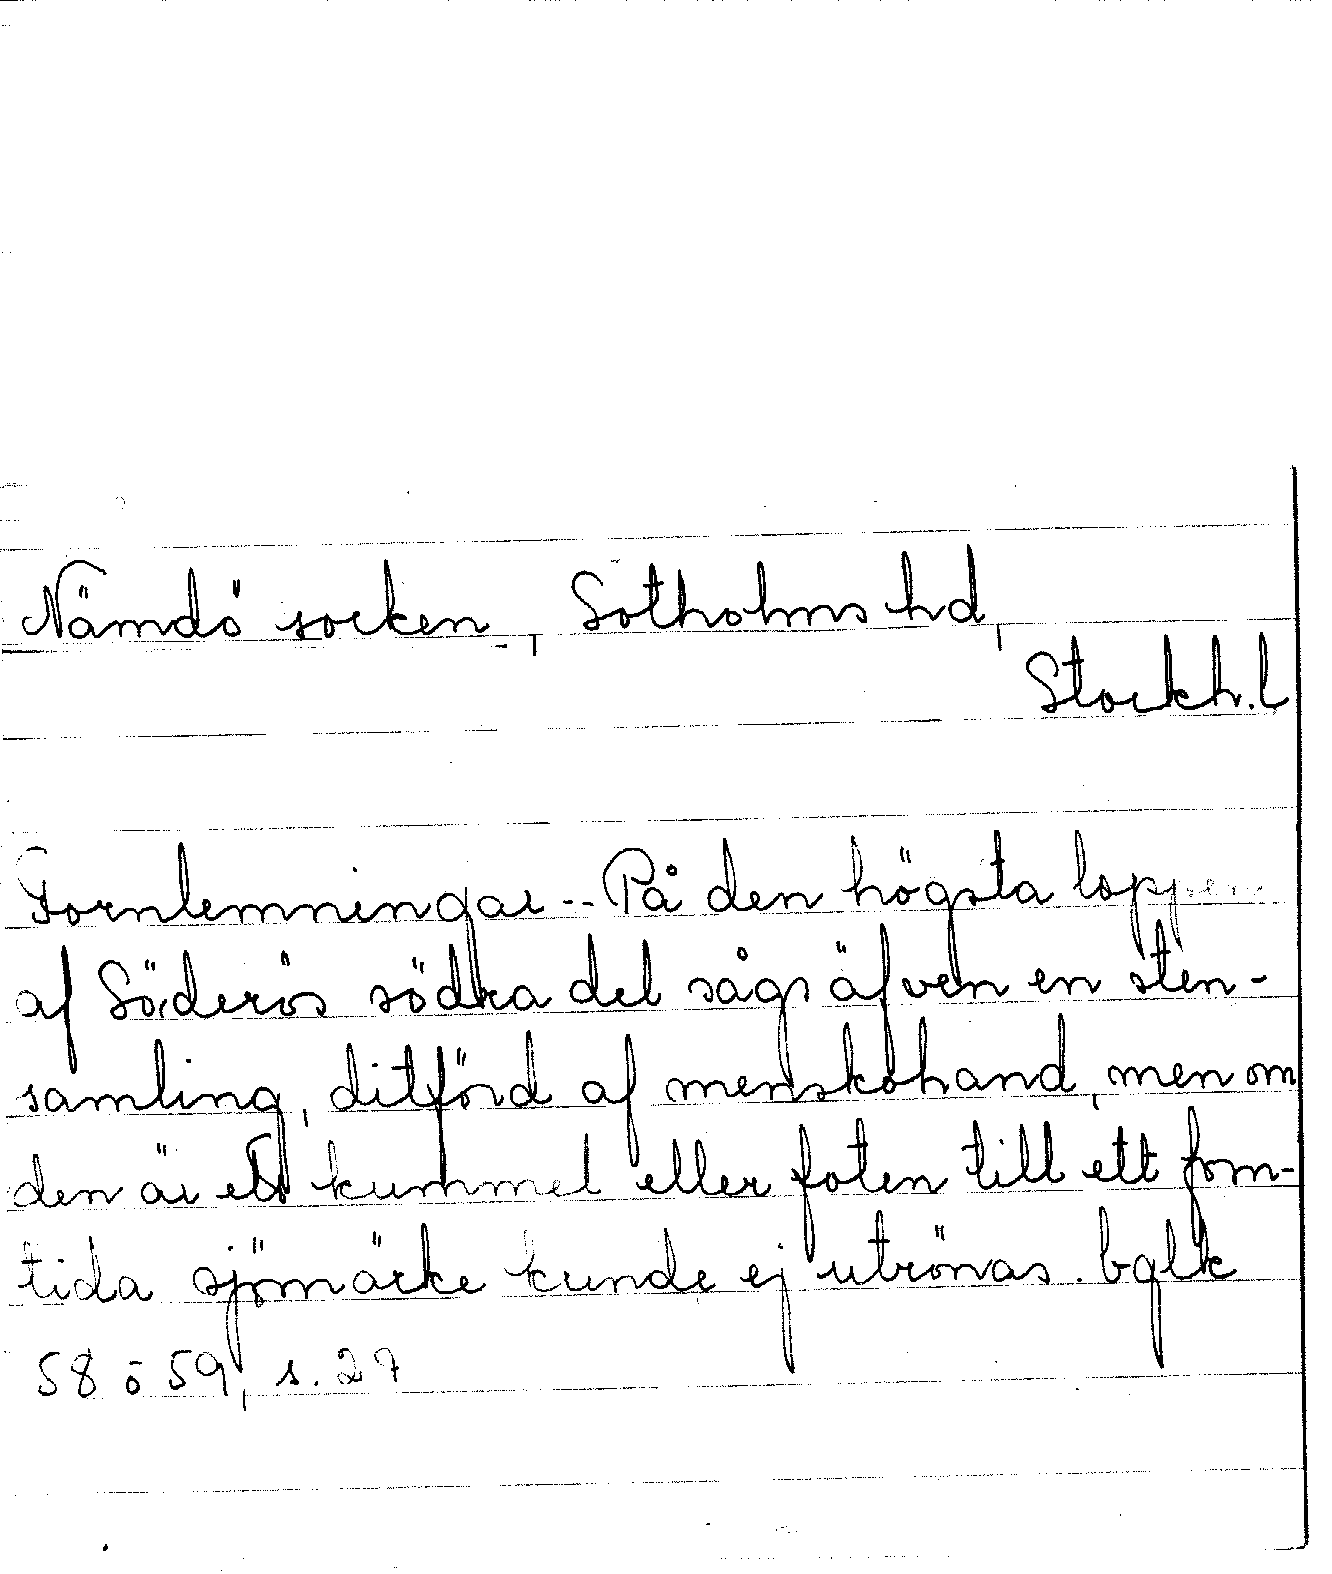 Nämdö socken, Sotholms hd,
Stockh. l
Fornlemningar -- På den högsta loppen
af Söderös södra del sågs äfven en sten-
samling, ditförd af menskohand, men om
den är ett kummel eller foten till ett forn-
tida sjömärke kunde ej utrönas. bglk
58 o 59, s. 27